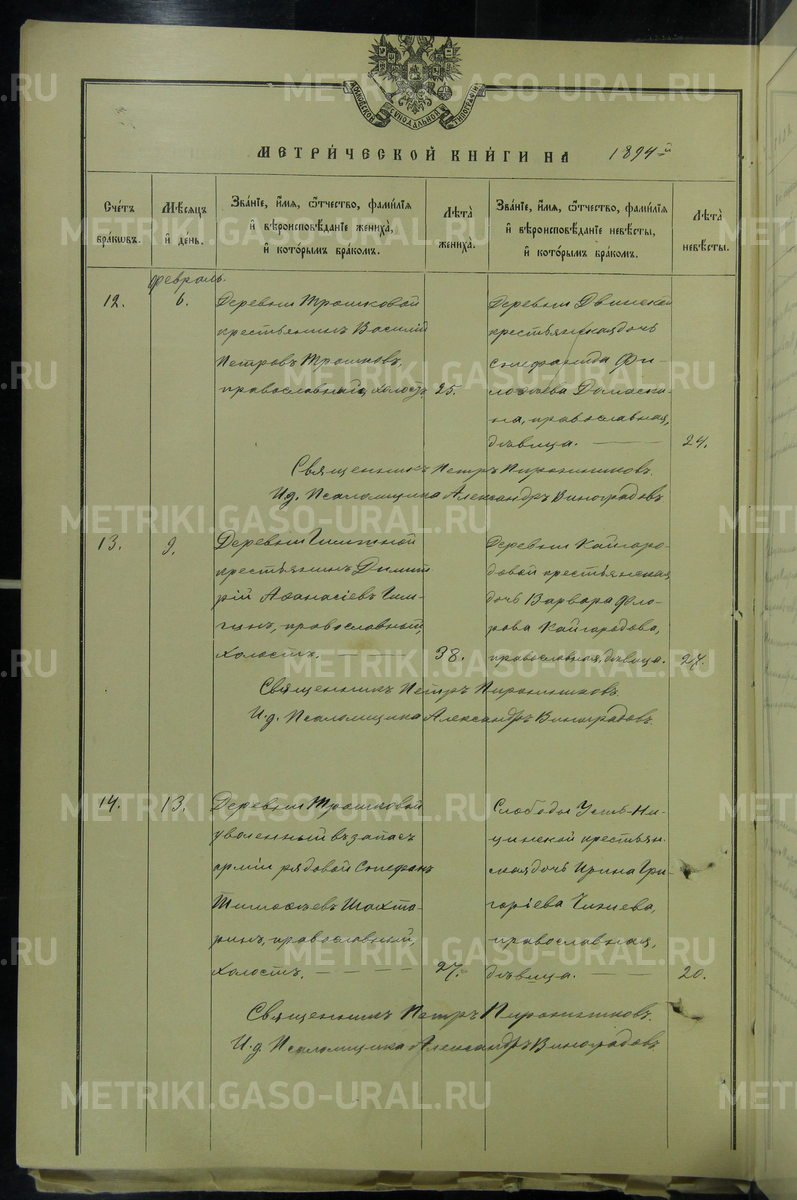 МОСКОВСКОЙ СѴНОДАЛЬНОЙ ТИПОГРАФІИ
МЕТРИ́ЧЕСКОЙ КНИ́ГИ НА 1894й
Сче́тъ бра́кѡвъ.
Мѣ́сѧцъ и҆ де́нь.
Зва́нїе, и҆́мѧ, ѻ҆́тчество, фами́лїѧ и҆ вѣроисповѣ́данїе жениха̀, и҆ кото́рымъ бра́комъ.
Лѣта̀ жениха̀.
Зва́нїе, и҆́мѧ, ѻ҆́тчество, фами́лїѧ и҆ вѣроисповѣ́данїе невѣ́сты, и҆ кото́рымъ бра́комъ.
Лѣта̀ невѣ́сты.
февраль.
12.
6.
Деревни Трошковой
крестьянинъ Василій
Петровъ Трошковъ,
православный, холостъ
25.
Деревни Двинской
крестьянская дочь
Стефанида Фи-
лофеева Домаски-
на, православная,
дѣвица.
24.
Священникъ Петръ Пирожниковъ.
И.д. Псаломщика Александръ Виноградовъ
13.
9.
крестьянинъ Димит
рій Аѳанасіевъ
православный,
холостъ.
38.
Деревни Кайгоро-
довой крестьянская
дочь Варвара Фло-
рова Кайгородова,
православная, дѣвица.
27.
Священникъ Петръ Пирожниковъ.
И.д. Псаломщика Александръ Виноградовъ.
14.
13.
Деревни Трошковой
уволенный въ запасъ
арміи рядовой Стефанъ
Тимоѳеевъ Шахма-
ринъ, православный,
холостъ.
27.
Слободы Усть-Ни-
цинской крестьян.
ская дочь Ирина Гри-
горіева Чижева,
православная,
дѣвица.
20.
Священникъ Петръ Пирожниковъ.
И.д. Псаломщика Александръ Виноградовъ.
METRIKI.GASO-URAL.RU